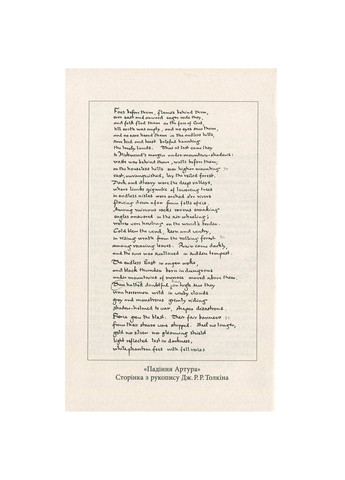 Foes before them, flames behind them,
ever east and onward eager rode they,
and folk fled them as the face of God,
till earth was empty, and no eyes saw them,
and no ears heard them in the endless hills,
save bird and beast baleful haunting
the lonely lands. Thus at last came they
to Mirkwood's margin under mountain-shadows:
waste was behind them, walls before them;
on the houseless hills ever higher mounting
vast, unvanquished, lay the veiled forest.
Dark and dreary were the deep valleys,
where limbs gigantic of lowering trees
in endless aisles were arched o'er rivers
flowing down afar from fells of ice.
Among ruinous rocks ravens croaking
eagles answered in the air wheeling;
wolves were howling on the wood's border.
Cold blew the wind, keen and wintry,
in rising wrath from the rolling forest
among roaring leaves. Rain came darkly,
and the sun was swallowed in sudden tempest.
The endless East in anger woke,
and black thunder born in dungeons
under mountains of menace moved above them.
Then halted doubtful on high saw they
wan horsemen wild in windy clouds
grey and monstrous grimly riding
shadow-helmed to war, shapes disastrous.
Fierce grew the blast. Their fair banners
from their staves were stripped. Steel no longer,
gold nor silver nor gleaming shield
light reflected lost in darkness,
while phantom foes with fell voices
«Падіння Артура»
Сторінка з рукопису Дж. Р. Р. Толкіна